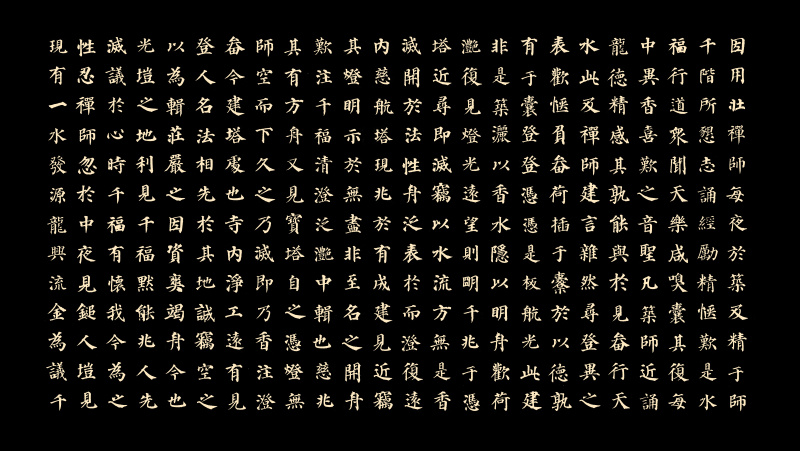 因用壯禪師每夜於築及精于師
千階所懇志誦經勵精愜歎是水
福行道眾聞天樂咸嗅囊其復每
中異香喜歎之音聖凡築師近誦
龍德精感其孰能與於見畚行天
水此及禪師建言雜然尋登異之
表歡愜員畚荷插于橐於以德孰
有于囊登登憑憑是板航光此建
非是築灑以香水隱以明舟歡荷
灔復見燈光遠望則明千兆于憑
塔近尋即滅竊以水流方無是香
滅開於法性舟泛表於而澄復遠
內慈航塔現兆於有成建見近竊
其燈明示於無盡非至名之開舟
歎注千福清澄泛灔中輯也慈兆
其有方舟又見寶塔自之憑燈無
師空而下久之乃滅即乃香注澄
畚今建塔處也寺內淨工遠有見
登人名法相先於其地誠竊空之
以為輯莊嚴之因資爰竭舟今也
光塏之地利見千福默能兆人先
滅議於心時千福有懷我今為之
性忍禪師忽於中夜見鎚人塏見
現有一水發源龍興流金為議千